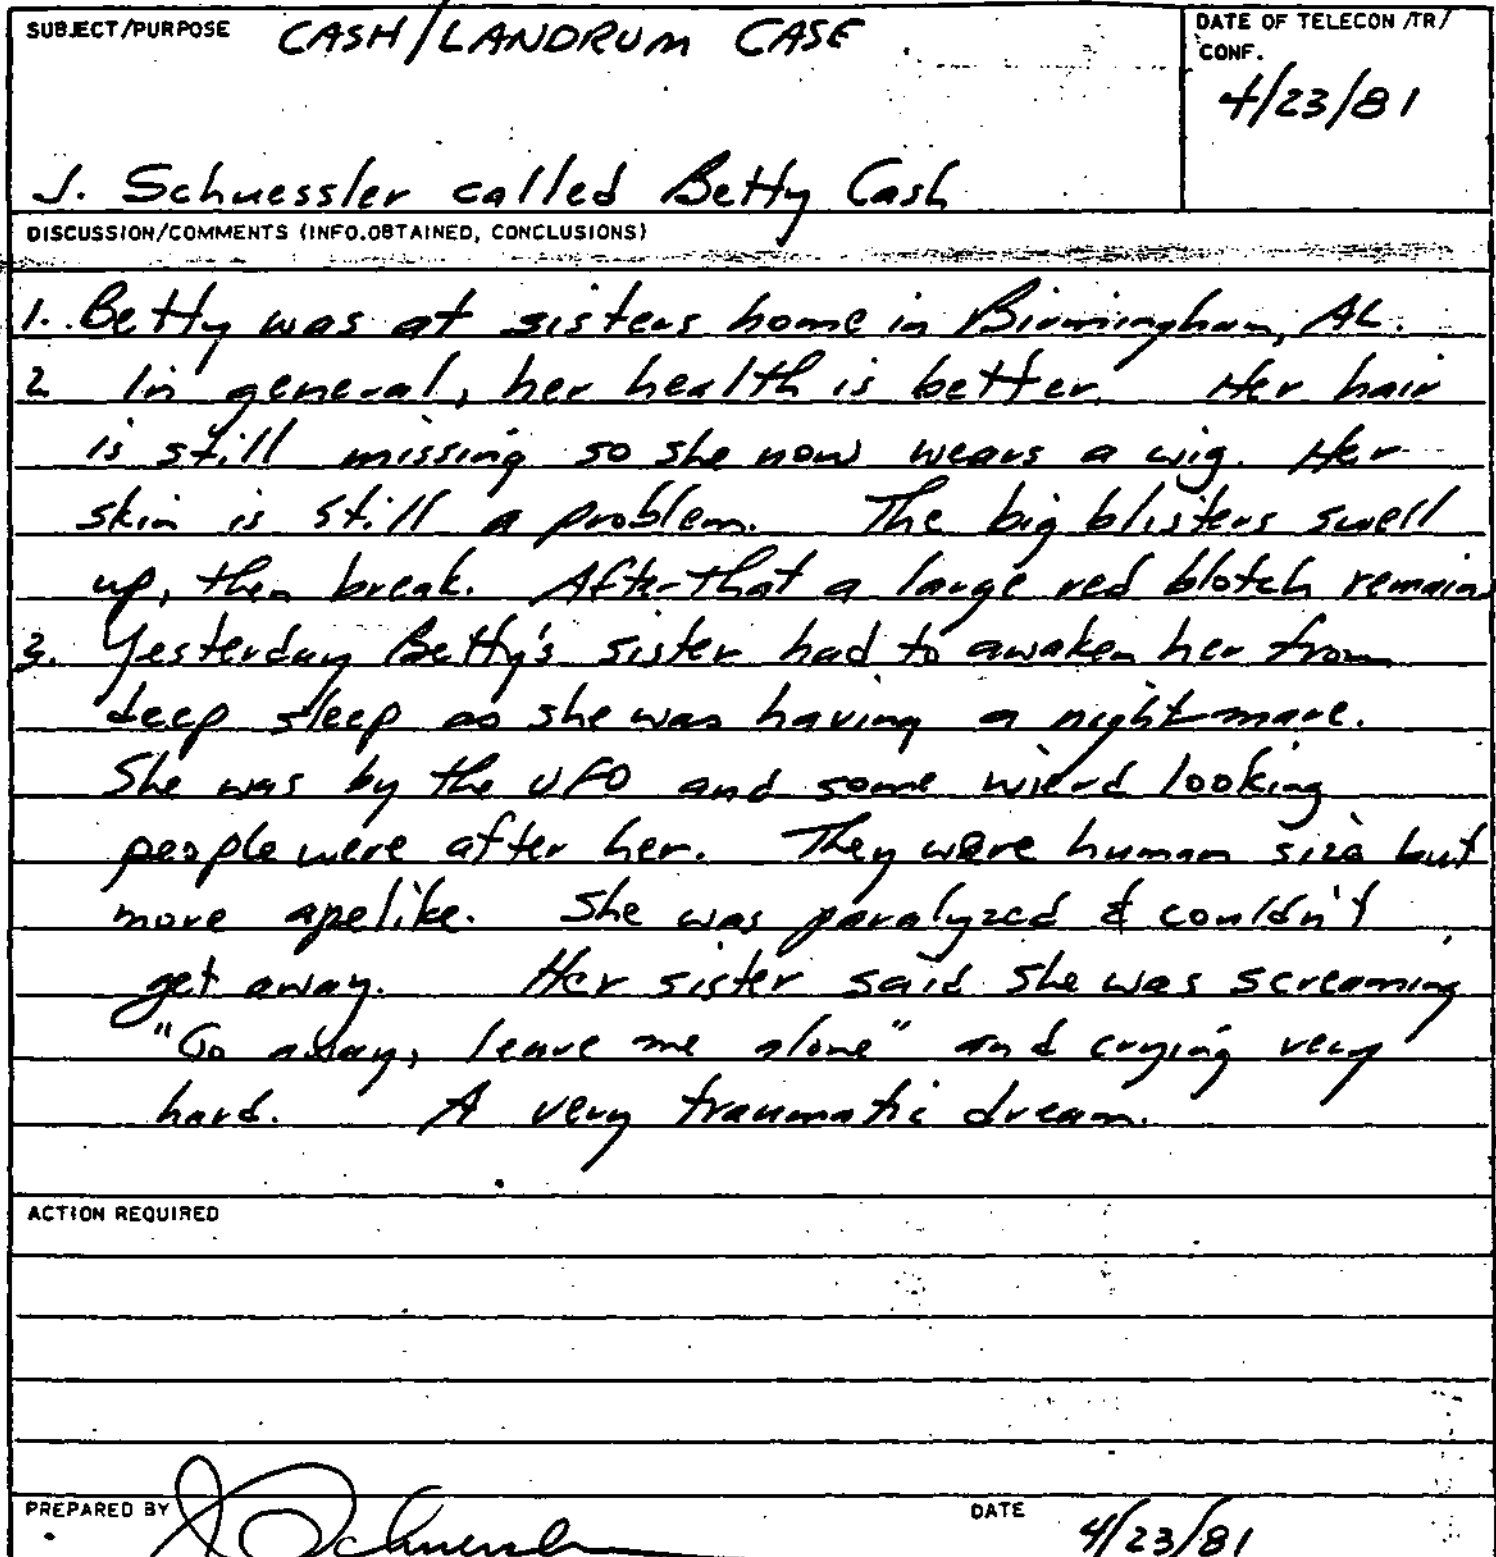 SUBJECT/PURPOSE CASH/LANDRUM CASE
DATE OF TELECON /TR/
CONF.
4/23/81
J. Schuessler called Betty Cash
DISCUSSION/COMMENTS (INFO.OBTAINED, CONCLUSIONS)
1. Betty was at sisters home in Birmingham, AL.
2 In general, her health is better. Her hair
is still missing so she now wears a wig. Her
skin is still a problem. The big blisters swell
up, then break. After that a large red blotch remains
3. Yesterday Betty's sister had to awaken her from
deep sleep as she was having a nightmare.
She was by the UFO and some wierd looking
people were after her. They were human size but
more apelike. She was paralyzed & couldn't
get away. Her sister said she was screaming
"Go away, leave me alone" and crying very
hard. A very traumatic dream.
ACTION REQUIRED
PREPARED BY J Schuessler DATE 4/23/81